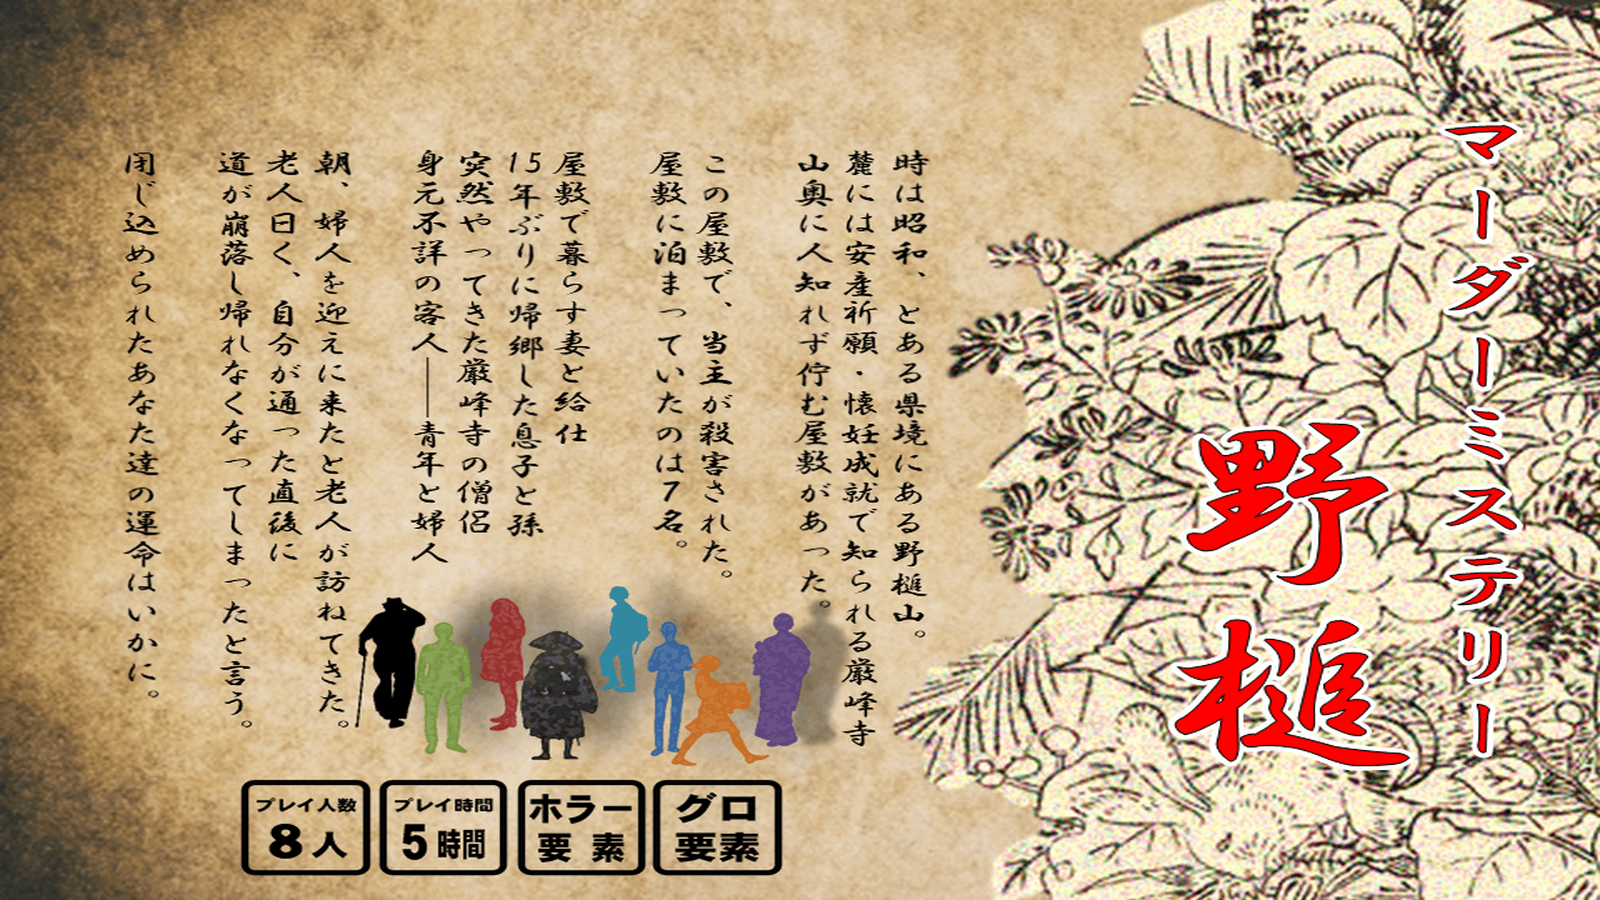 マーダーミステリー
野槌
時は昭和、とある県境にある野槌山。
麓には安産祈願・懐妊成就で知られる厳峰寺
山奥に人知れず佇む屋敷があった。
この屋敷で、当主が殺害された。
屋敷に泊まっていたのは7名。
屋敷で暮らす妻と給仕
15年ぶりに帰郷した息子と孫
突然やってきた厳峰寺の僧侶
身元不詳の客人――青年と婦人
朝、婦人を迎えに来たと老人が訪ねてきた。
老人曰く、自分が通った直後に
道が崩落し帰れなくなってしまったと言う。
閉じ込められたあなた達の運命はいかに。
プレイ人数
8人
プレイ時間
5時間
ホラー
要素
グロ
要素